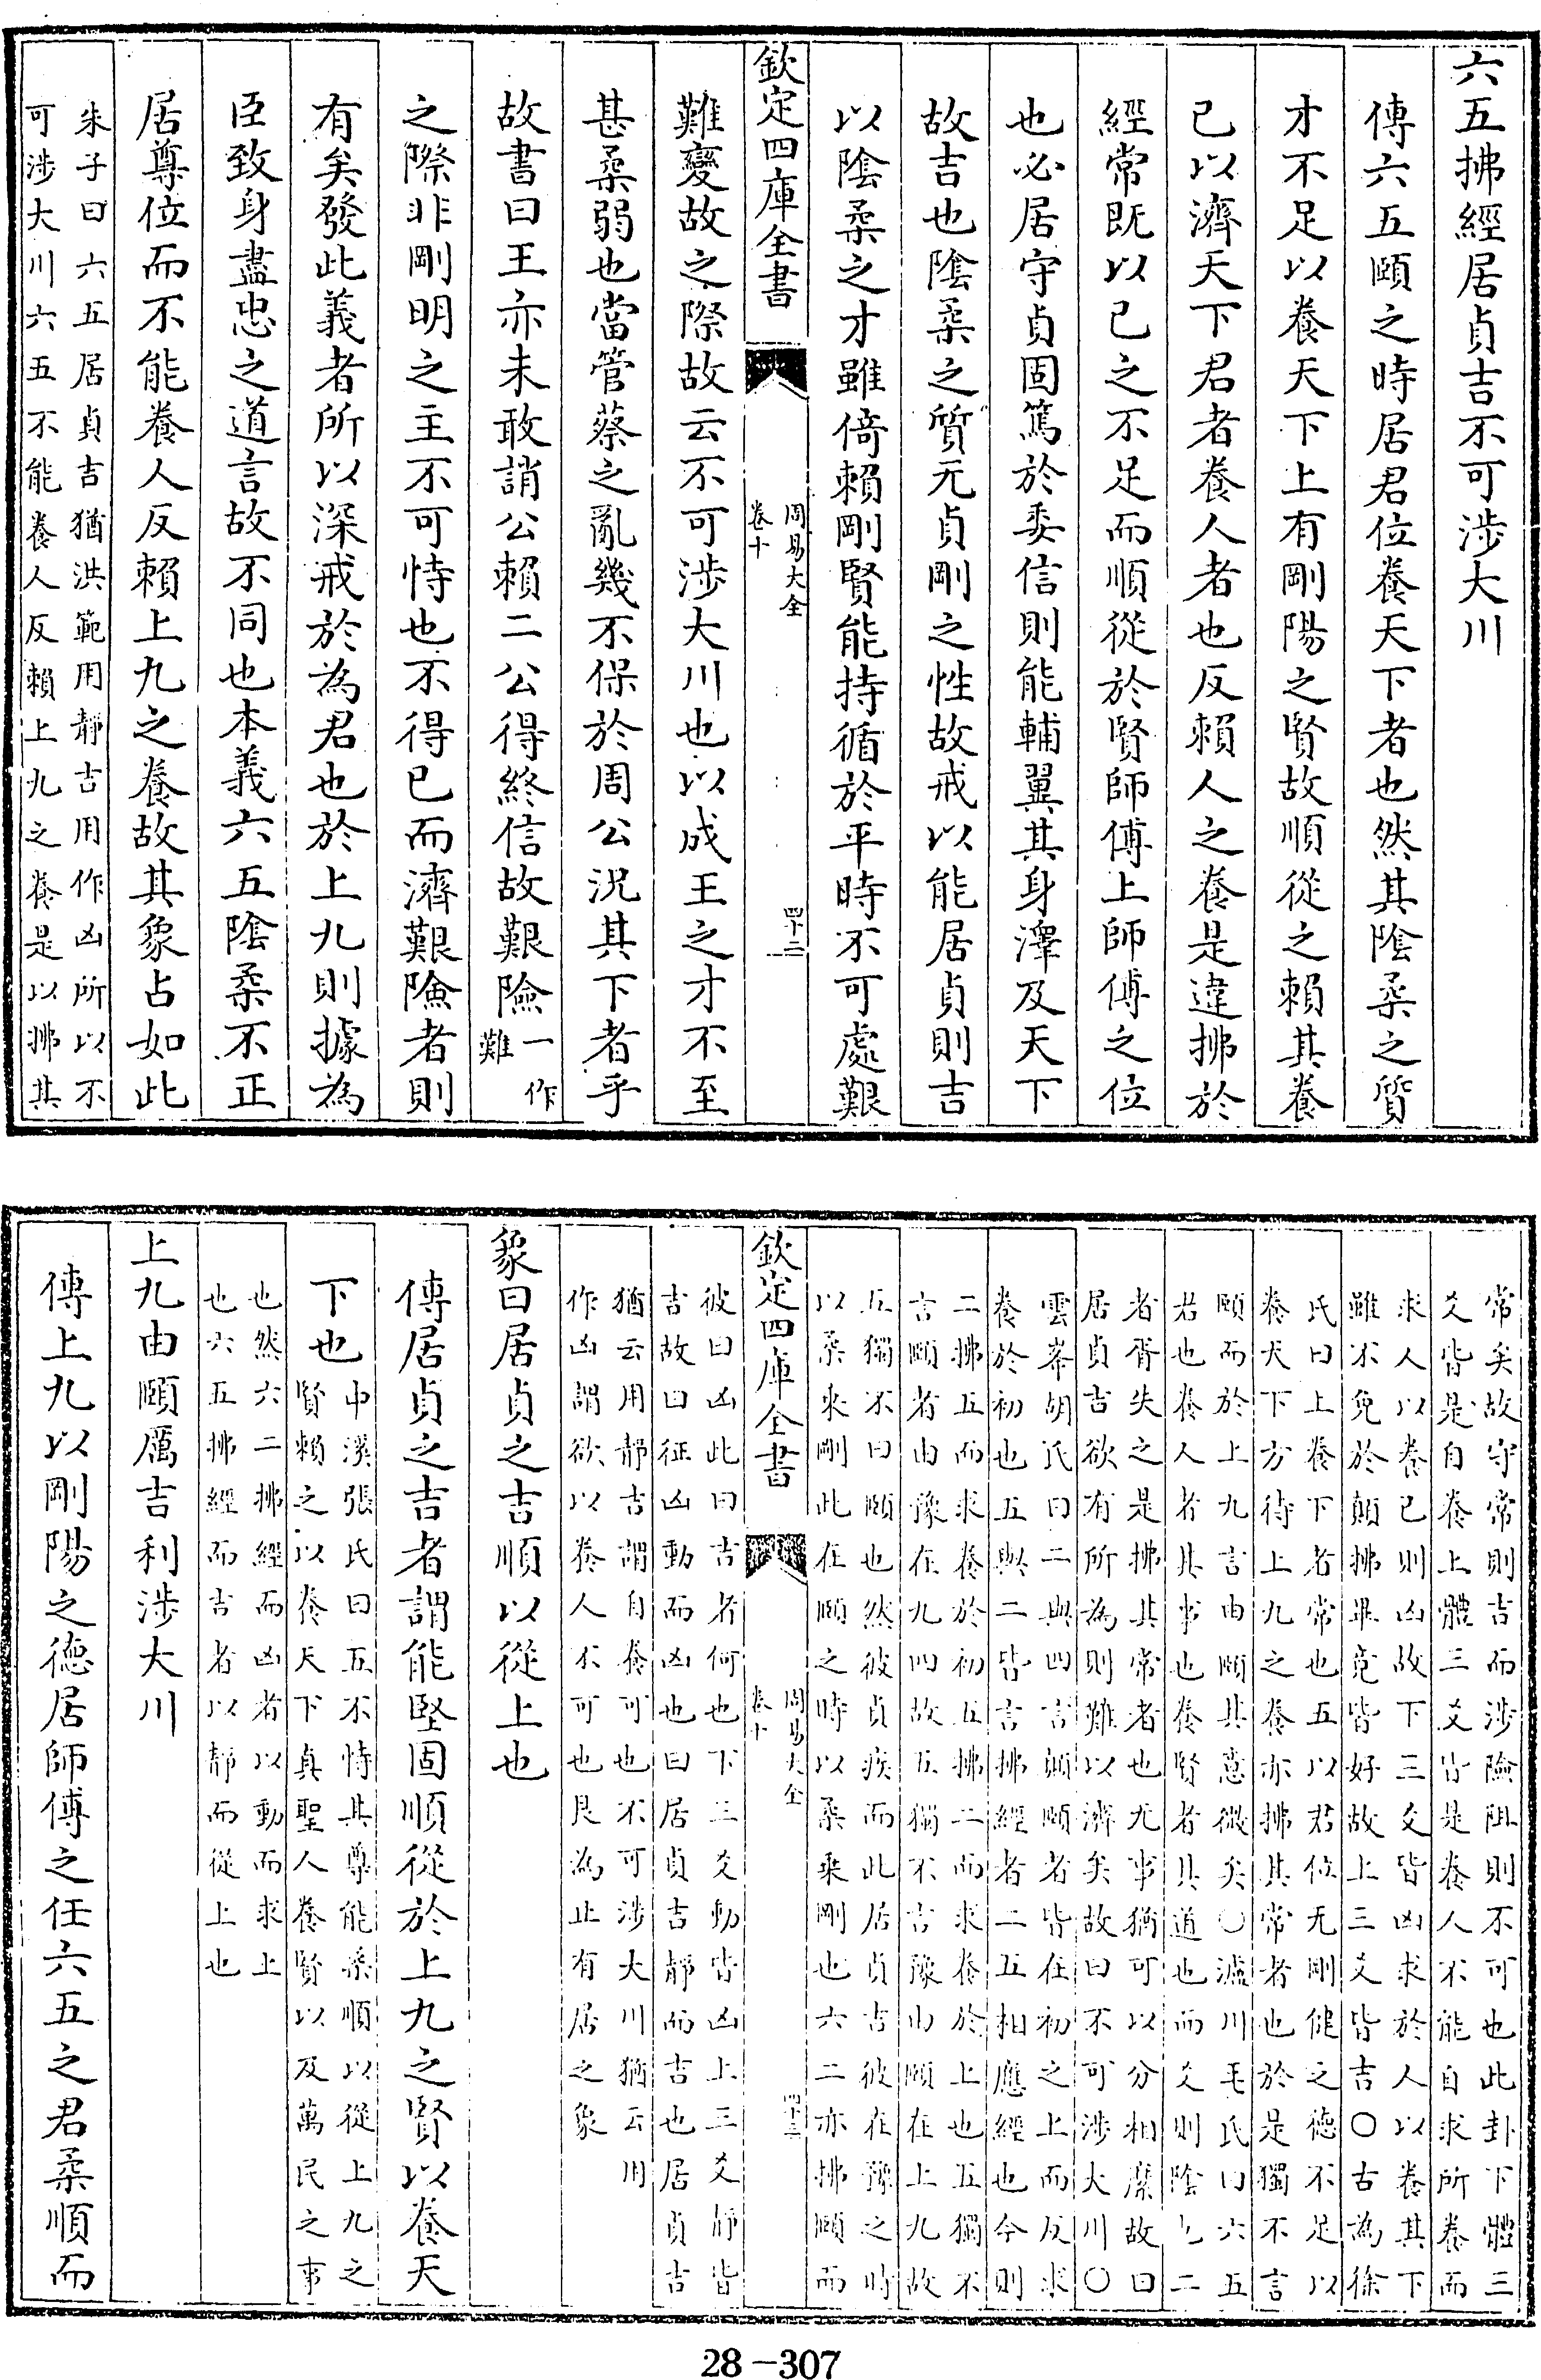 六五拂經居貞吉不可涉大川
傳六五頤之時居君位養天下者也然其陰柔之質
才不足以養天下上有剛陽之賢故順從之賴其養
已以濟天下君者養人者也反賴人之養是違拂於
經常既以已之不足而順從於賢師傅上師傅之位
也必居守貞固篤於委信則能輔翼其身澤及天下
故吉也陰柔之質无貞剛之性故戒以能居貞則吉
以陰柔之才雖倚賴剛賢能持循於平時不可處艱
欽定四庫全書
周易大全
卷十
四十二
難變故之際故云不可涉大川也以成王之才不至
甚柔弱也當管蔡之亂幾不保於周公況其下者乎
故書曰王亦未敢誚公賴二公得終信故艱險一作難
之際非剛明之主不可恃也不得已而濟艱險者則
有矣發此義者所以深戒於為君也於上九則據為
臣致身盡忠之道言故不同也本義六五陰柔不正
居尊位而不能養人反賴上九之養故其象占如此
朱子曰六五居貞吉猶洪範用靜吉用作凶所以不
可涉大川六五不能養人反賴上九之養是以拂其
常矣故守常則吉而涉險阻則不可也此卦下體三
爻皆是自養上體三爻皆是養人不能自求所養而
求人以養已則凶故下三爻皆凶求於人以養其下
雖不免於顛拂畢竟皆好故上三爻皆吉〇古為徐
氏曰上養下者常也五以君位无剛健之德不足以
養天下方待上九之養亦拂其常者也於是獨不言
頤而於上九言由頤其意微矣〇瀘川毛氏曰六五
君也養人者其事也養賢者其道也而爻則陰也二
者胥失之是拂其常者也尤事猶可以分相縻故曰
居貞吉欲有所為則難以濟矣故曰不可涉大川〇
雲峯胡氏曰二與四言顛頤者皆在初之上而反求
養於初也五與二皆言拂經者二五相應經也今則
二拂五而求養於初五拂二而求養於上也五獨不
言頤者由豫在九四故五獨不言豫由頤在上九故
五獨不曰頤也然彼貞疾而此居貞吉彼在豫之時
以柔乘剛此在頤之時以柔乘剛也六二亦拂頤而
欽定四庫全書
周易大全
卷十
四十三
彼曰凶此曰吉者何也下三爻動皆凶上三爻靜皆
吉故曰征凶動而凶也曰居貞吉靜而吉也居貞吉
猶云用靜吉謂自養可也不可涉大川猶云用
作凶謂欲以養人不可也艮為止有居之象
象曰居貞之吉順以從上也
傳居貞之吉者謂能堅固順從於上九之賢以養天
下也中溪張氏曰五不恃其尊能柔順以從上九之
賢賴之以養天下真聖人養賢以及萬民之事
也然六二拂經而凶者以動而求上
也六五拂經而吉者以靜而從上也
上九由頤厲吉利涉大川
傳上九以剛陽之德居師傅之任六五之君柔順而
28-307